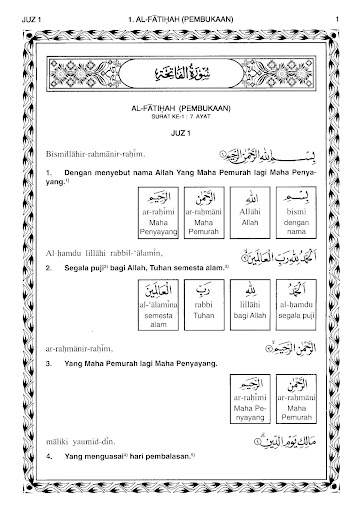 JUZ 1 1. AL-FĀTIḤAH (PEMBUKAAN) 1
سُورَةُ الْفَاتِحَةِ
AL-FĀTIḤAH (PEMBUKAAN)
SURAT KE-1 : 7 AYAT
JUZ 1
Bismillāhir-raḥmānir-raḥīm. بِسْمِ اللّٰهِ الرَّحْمٰنِ الرَّحِيْمِ ۝١
1. Dengan menyebut nama Allah Yang Maha Pemurah lagi Maha Penya-
yang.¹⁾
الرَّحِيْمِ الرَّحْمٰنِ اللّٰهِ بِسْمِ
ar-raḥīmi ar-raḥmāni Allāhi bismi
Maha Maha Allah dengan
Penyayang Pemurah nama
Al-ḥamdu lillāhi rabbil-‘ālamīn, اَلْحَمْدُ لِلّٰهِ رَبِّ الْعَالَمِيْنَ ۝٢
2. Segala puji²⁾ bagi Allah, Tuhan semesta alam.³⁾
الْعَالَمِيْنَ رَبِّ لِلّٰهِ اَلْحَمْدُ
al-‘ālamīna rabbi lillāhi al-ḥamdu
semesta Tuhan bagi Allah segala puji
alam
ar-raḥmānir-raḥīm, الرَّحْمٰنِ الرَّحِيْمِ ۝٣
3. Yang Maha Pemurah lagi Maha Penyayang.
الرَّحِيْمِ الرَّحْمٰنِ
ar-raḥīmi ar-raḥmāni
Maha Pe- Maha
nyayang Pemurah
māliki yaumid-dīn. مَالِكِ يَوْمِ الدِّيْنِ ۝٤
4. Yang menguasai⁴⁾ hari pembalasan.⁵⁾